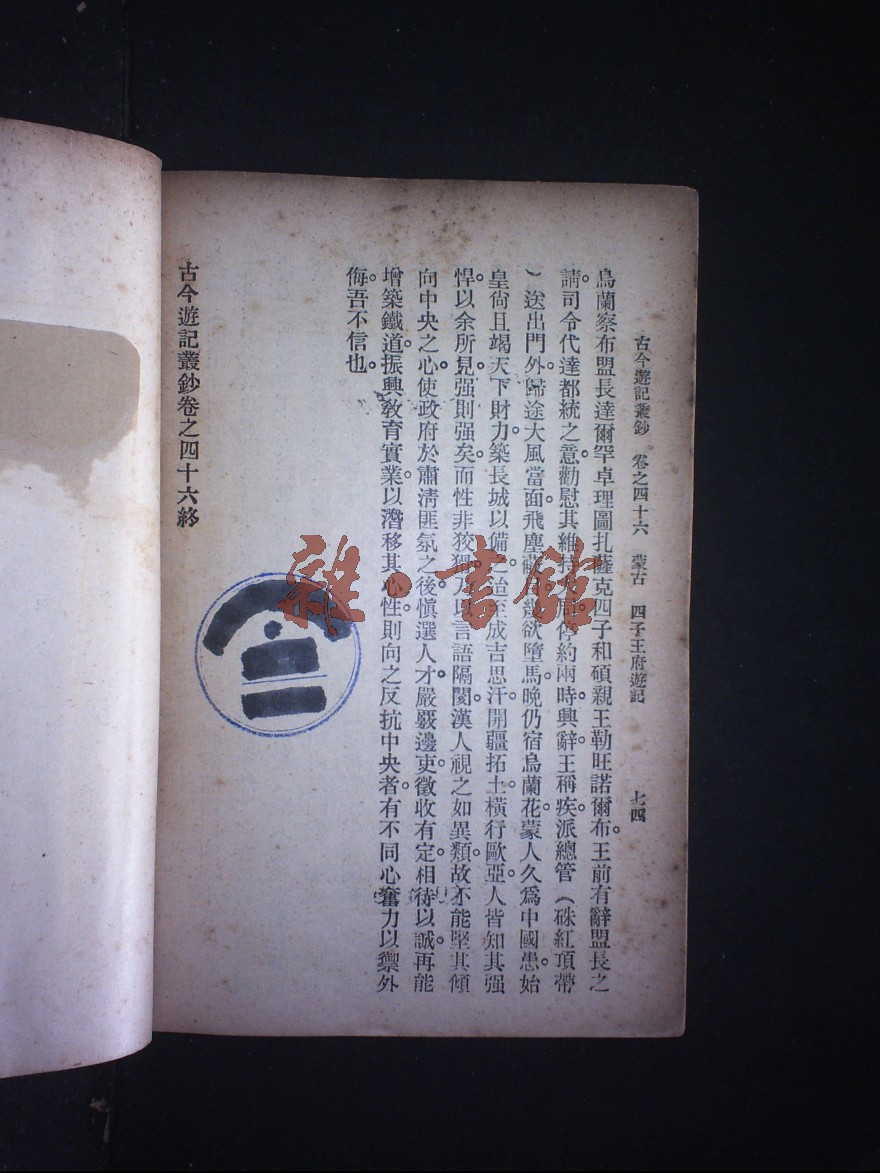 古今遊記叢鈔　卷之四十六　蒙古　四子王府遊記　七四
烏蘭察布盟長達爾罕卓理圖扎薩克四子和碩親王勒旺諾爾布。王前有辭盟長之
請。司令代達都統之意。勸慰其維持
停約兩時興辭。王稱疾。派總管（硃紅頂帶
）送出門外。歸途大風當面。飛塵
欲墮馬。晚仍宿烏蘭花。蒙人久爲中國患。始
皇尙且竭天下財力。築長城以備
成吉思汗。開疆拓土。橫行歐亞。人皆知其强
悍。以余所見。强則强矣。而性非狡
以言語隔閡。漢人視之如異類。故不能堅其傾
向中央之心。使政府於肅淸匪氛之後。愼選人才。嚴覈邊吏。徵收有定。相待以誠。再能
增築鐵道。振興敎育實業。以潛移其心性。則向之反抗中央者。有不同心奮力以禦外
侮。吾不信也。
古今遊記叢鈔卷之四十六終
雜·書館